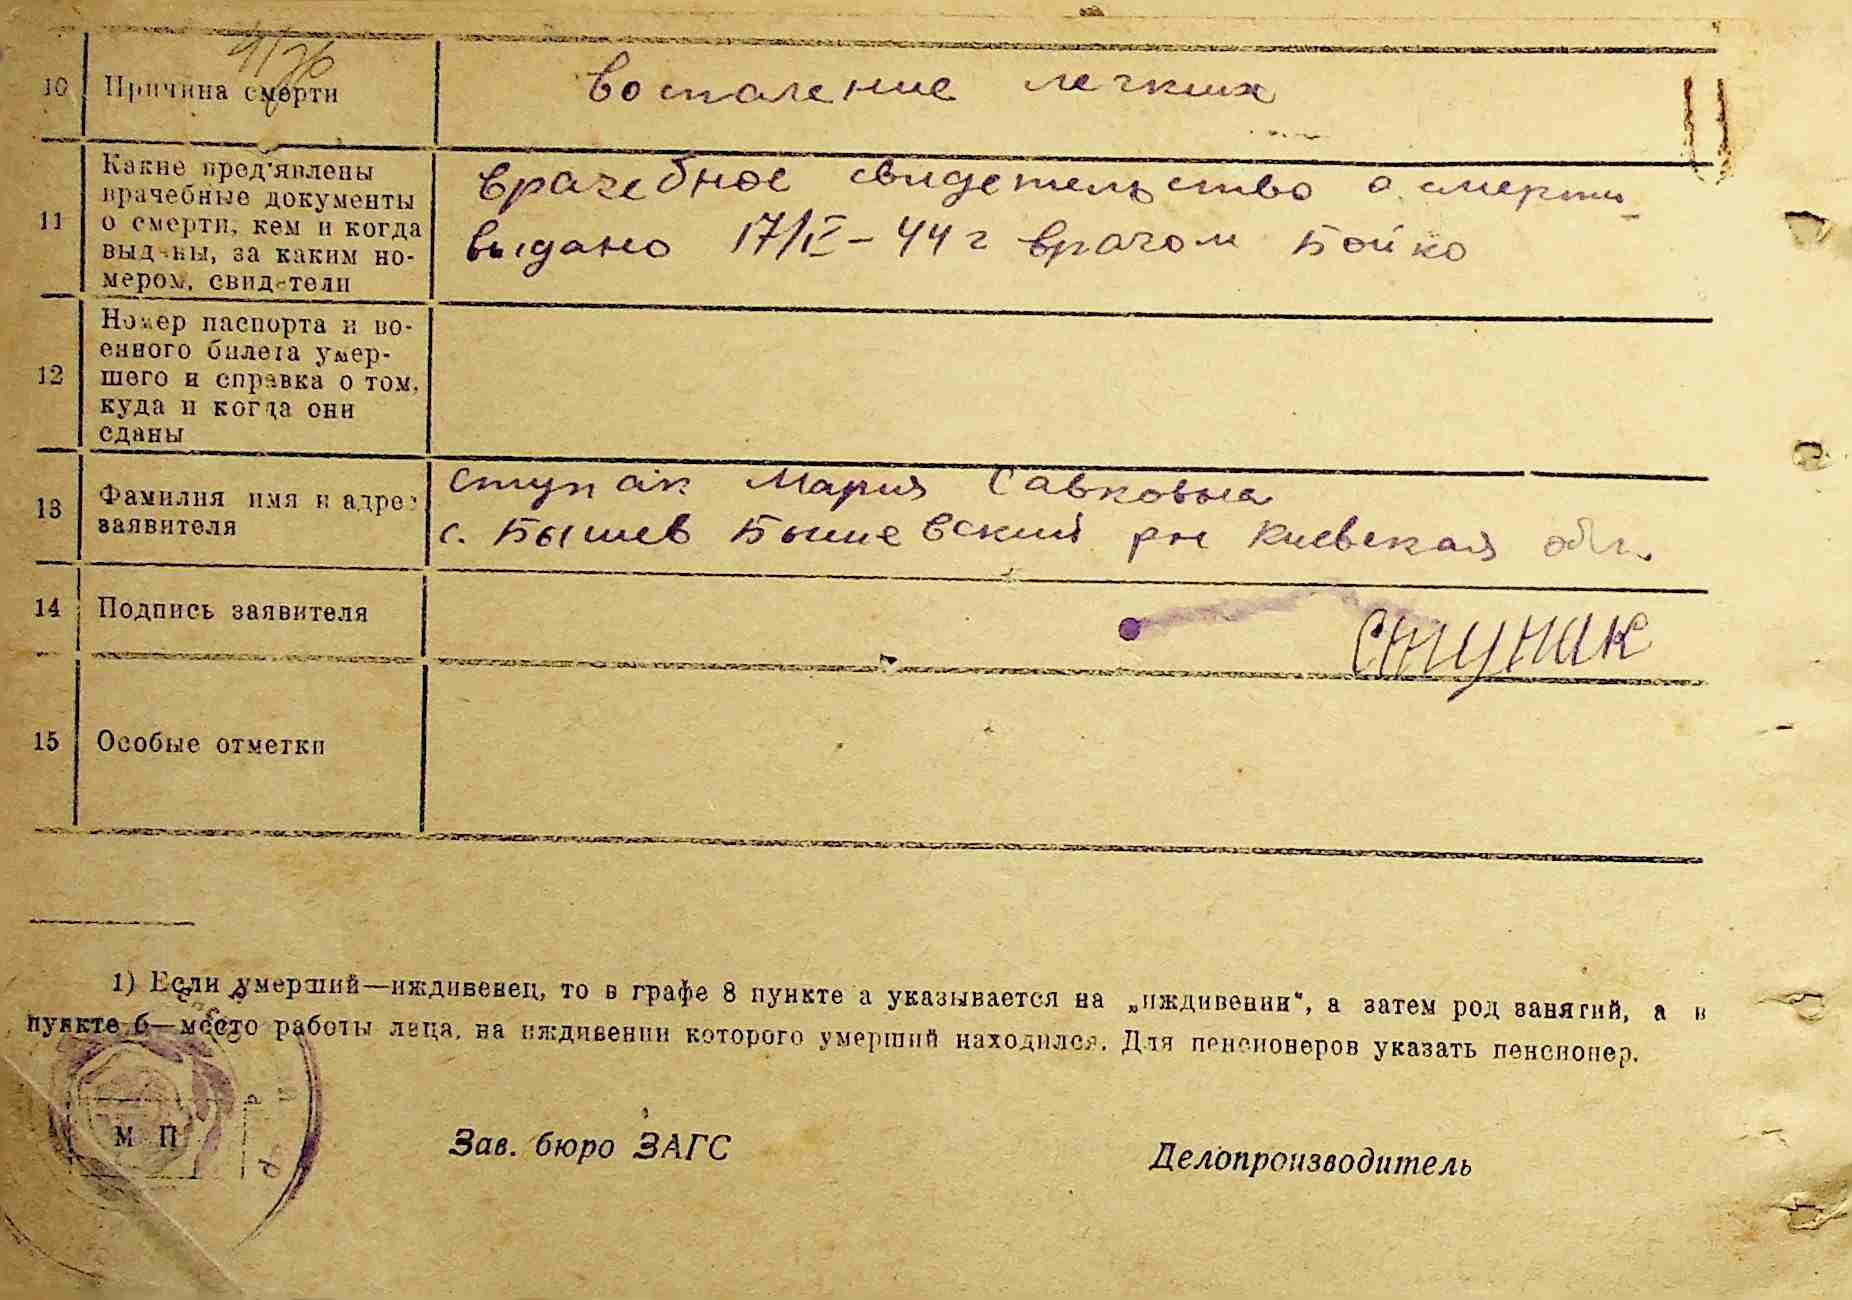 10 Причина смерти
воспаление легких
11
Какие пред'явлены
врачебные документы
о смерти, кем и когда
выданы, за каким но-
мером, свидетели
врачебное свидетельство о смерти
выдано 17/IV-44 г врачом Бойко
12
Номер паспорта и во-
енного билета умер-
шего и справка о том,
куда и когда они
сданы
13
Фамилия имя и адрес
заявителя
Ступак Мария Савковна
с. Бышев Бышевский рн Киевская обл.
14 Подпись заявителя
Ступак
15 Особые отметки
1) Если умерший—иждивенец, то в графе 8 пункте а указывается на „иждивении“, а затем род занятий, а в
пункте б—место работы лица, на иждивении которого умерший находился. Для пенсионеров указать пенсионер.
М П
Зав. бюро ЗАГС
Делопроизводитель